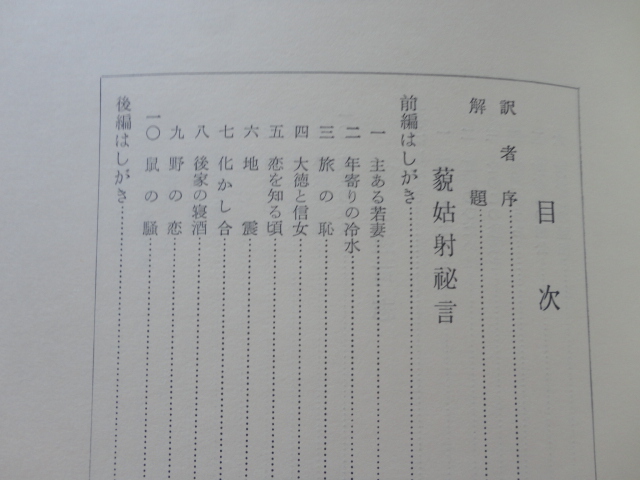 目次
訳者序
解題
藐姑射祕言
前編はしがき
一 主ある若妻
二 年寄りの冷水
三 旅の恥
四 大徳と信女
五 恋を知る頃
六 地震
七 化かし合
八 後家の寝酒
九 野の恋
一〇 鼠の騒
後編はしがき